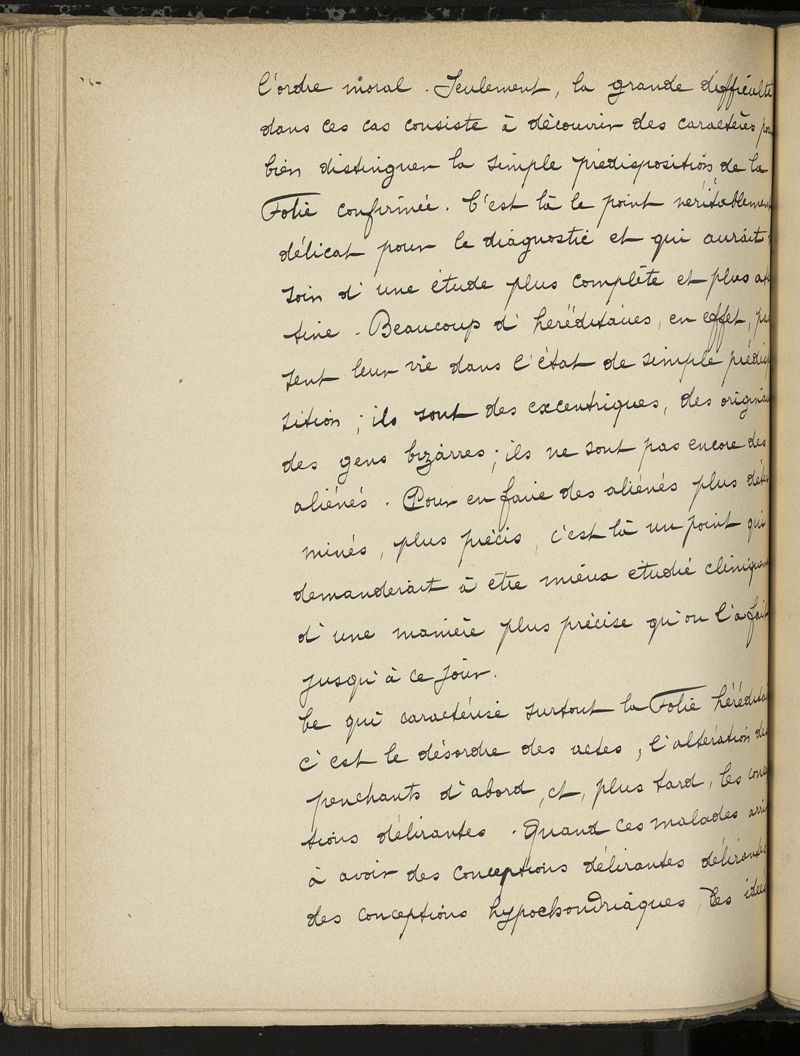 l'ordre moral. Seulement, la grande difficulté
dans ces cas consiste à découvrir des caractères pou
bien distinguer la simple prédisposition de la
Folie confirmée. C'est là le point véritablemen
délicat pour le diagnostic et qui aurait
soin d'une étude plus complète et plus at
tive. Beaucoup d'héréditaires, en effet, pa
sent leur vie dans l'état de simple prédis
sition; ils sont des excentriques, des origina
des gens bizarres; ils ne sont pas encore des
aliénés. Pour en faire des aliénés plus déter
minés, plus précis, c'est là un point qui
demanderait à être mieux étudié cliniquem
d'une manière plus précise qu'on l'a fait
jusqu'à ce jour.
Ce qui caractérise surtout la Folie héréditai
c'est le désordre des actes, l'altération des
penchants d'abord, et, plus tard, les conce
tions délirantes. Quand ces malades arri
à avoir des conceptions délirantes délirantes
des conceptions hypochondriaques, des idées